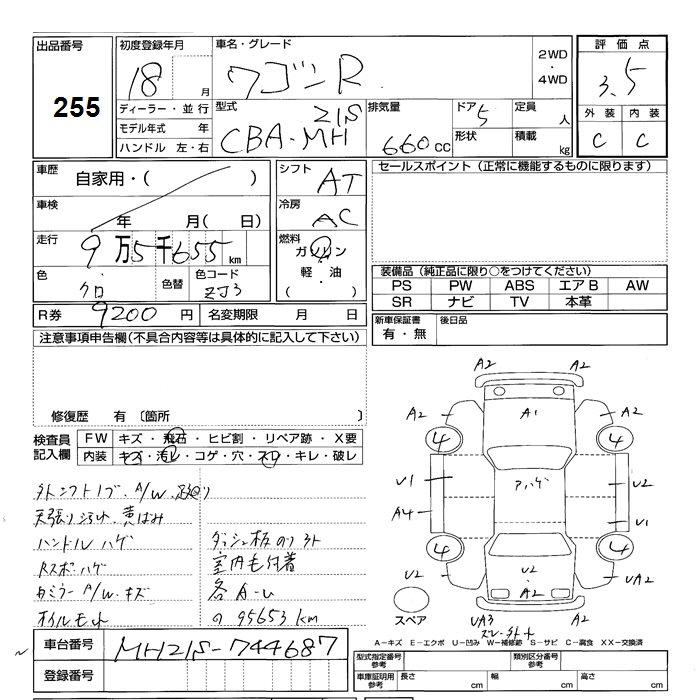 出品番号
255
初度登録年月
18 月
ディーラー・並行
モデル年式 年
ハンドル 左・右
車名・グレード
ワゴンR
2WD
・
4WD
型式
CBA-MH21S
排気量
660cc
ドア
5
形状
定員
人
積載
kg
評価点
3.5
外装 内装
C C
車歴
自家用・( )
車検
年 月( 日)
走行
9万5千655km
色
クロ
色替
色コード
ZJ3
R券 9200円 名変期限 月 日
シフト
AT
冷房
AC
燃料
ガソリン
軽・油
( )
セールスポイント(正常に機能するものに限ります)
装備品(純正品に限り○をつけてください)
PS PW ABS エアB AW
SR ナビ TV 本革
新車保証書
有・無
後日品
注意事項申告欄(不具合内容等は具体的に記入して下さい)
修復歴 有〔箇所 〕
検査員
記入欄
FW キズ・飛石・ヒビ割・リペア跡・X要
内装 キズ・汚レ・コゲ・穴・スレ・キレ・破レ
天張り 黄ばみ
ハンドル ハゲ
Rスポハゲ
A/W.キズ
オイルモレ
ダッシュ板のリ外
室内毛付着
各A-U
の 95653km
A2 A2
A2 A1 A2
4 4
U1 アハゲ U2
A4 U1
4 4
U2 U2 UA2
A2
スペア
UA3 A2
A－キズ E－エクボ U－凹み W－補修跡 S－サビ C－腐食 XX－交換済
車台番号 MH21S-744687
登録番号
型式指定番号
参考
類別区分番号
参考
車庫証明用
参考
長さ cm 幅 cm 高さ cm